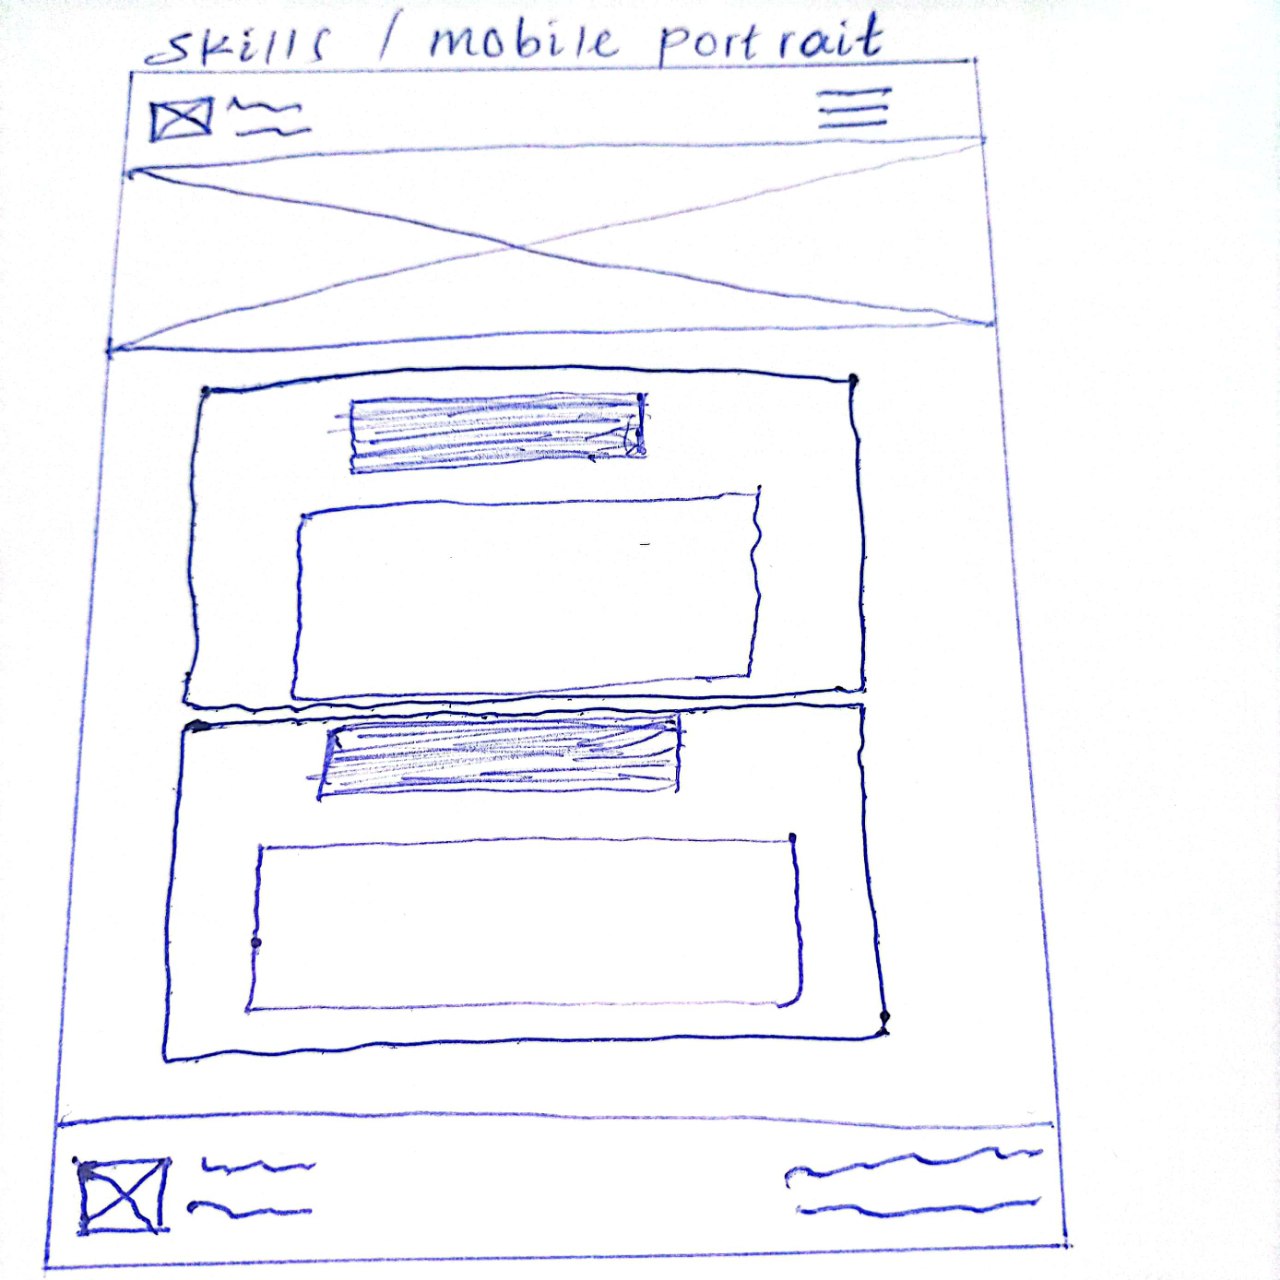 skills / mobile portrait